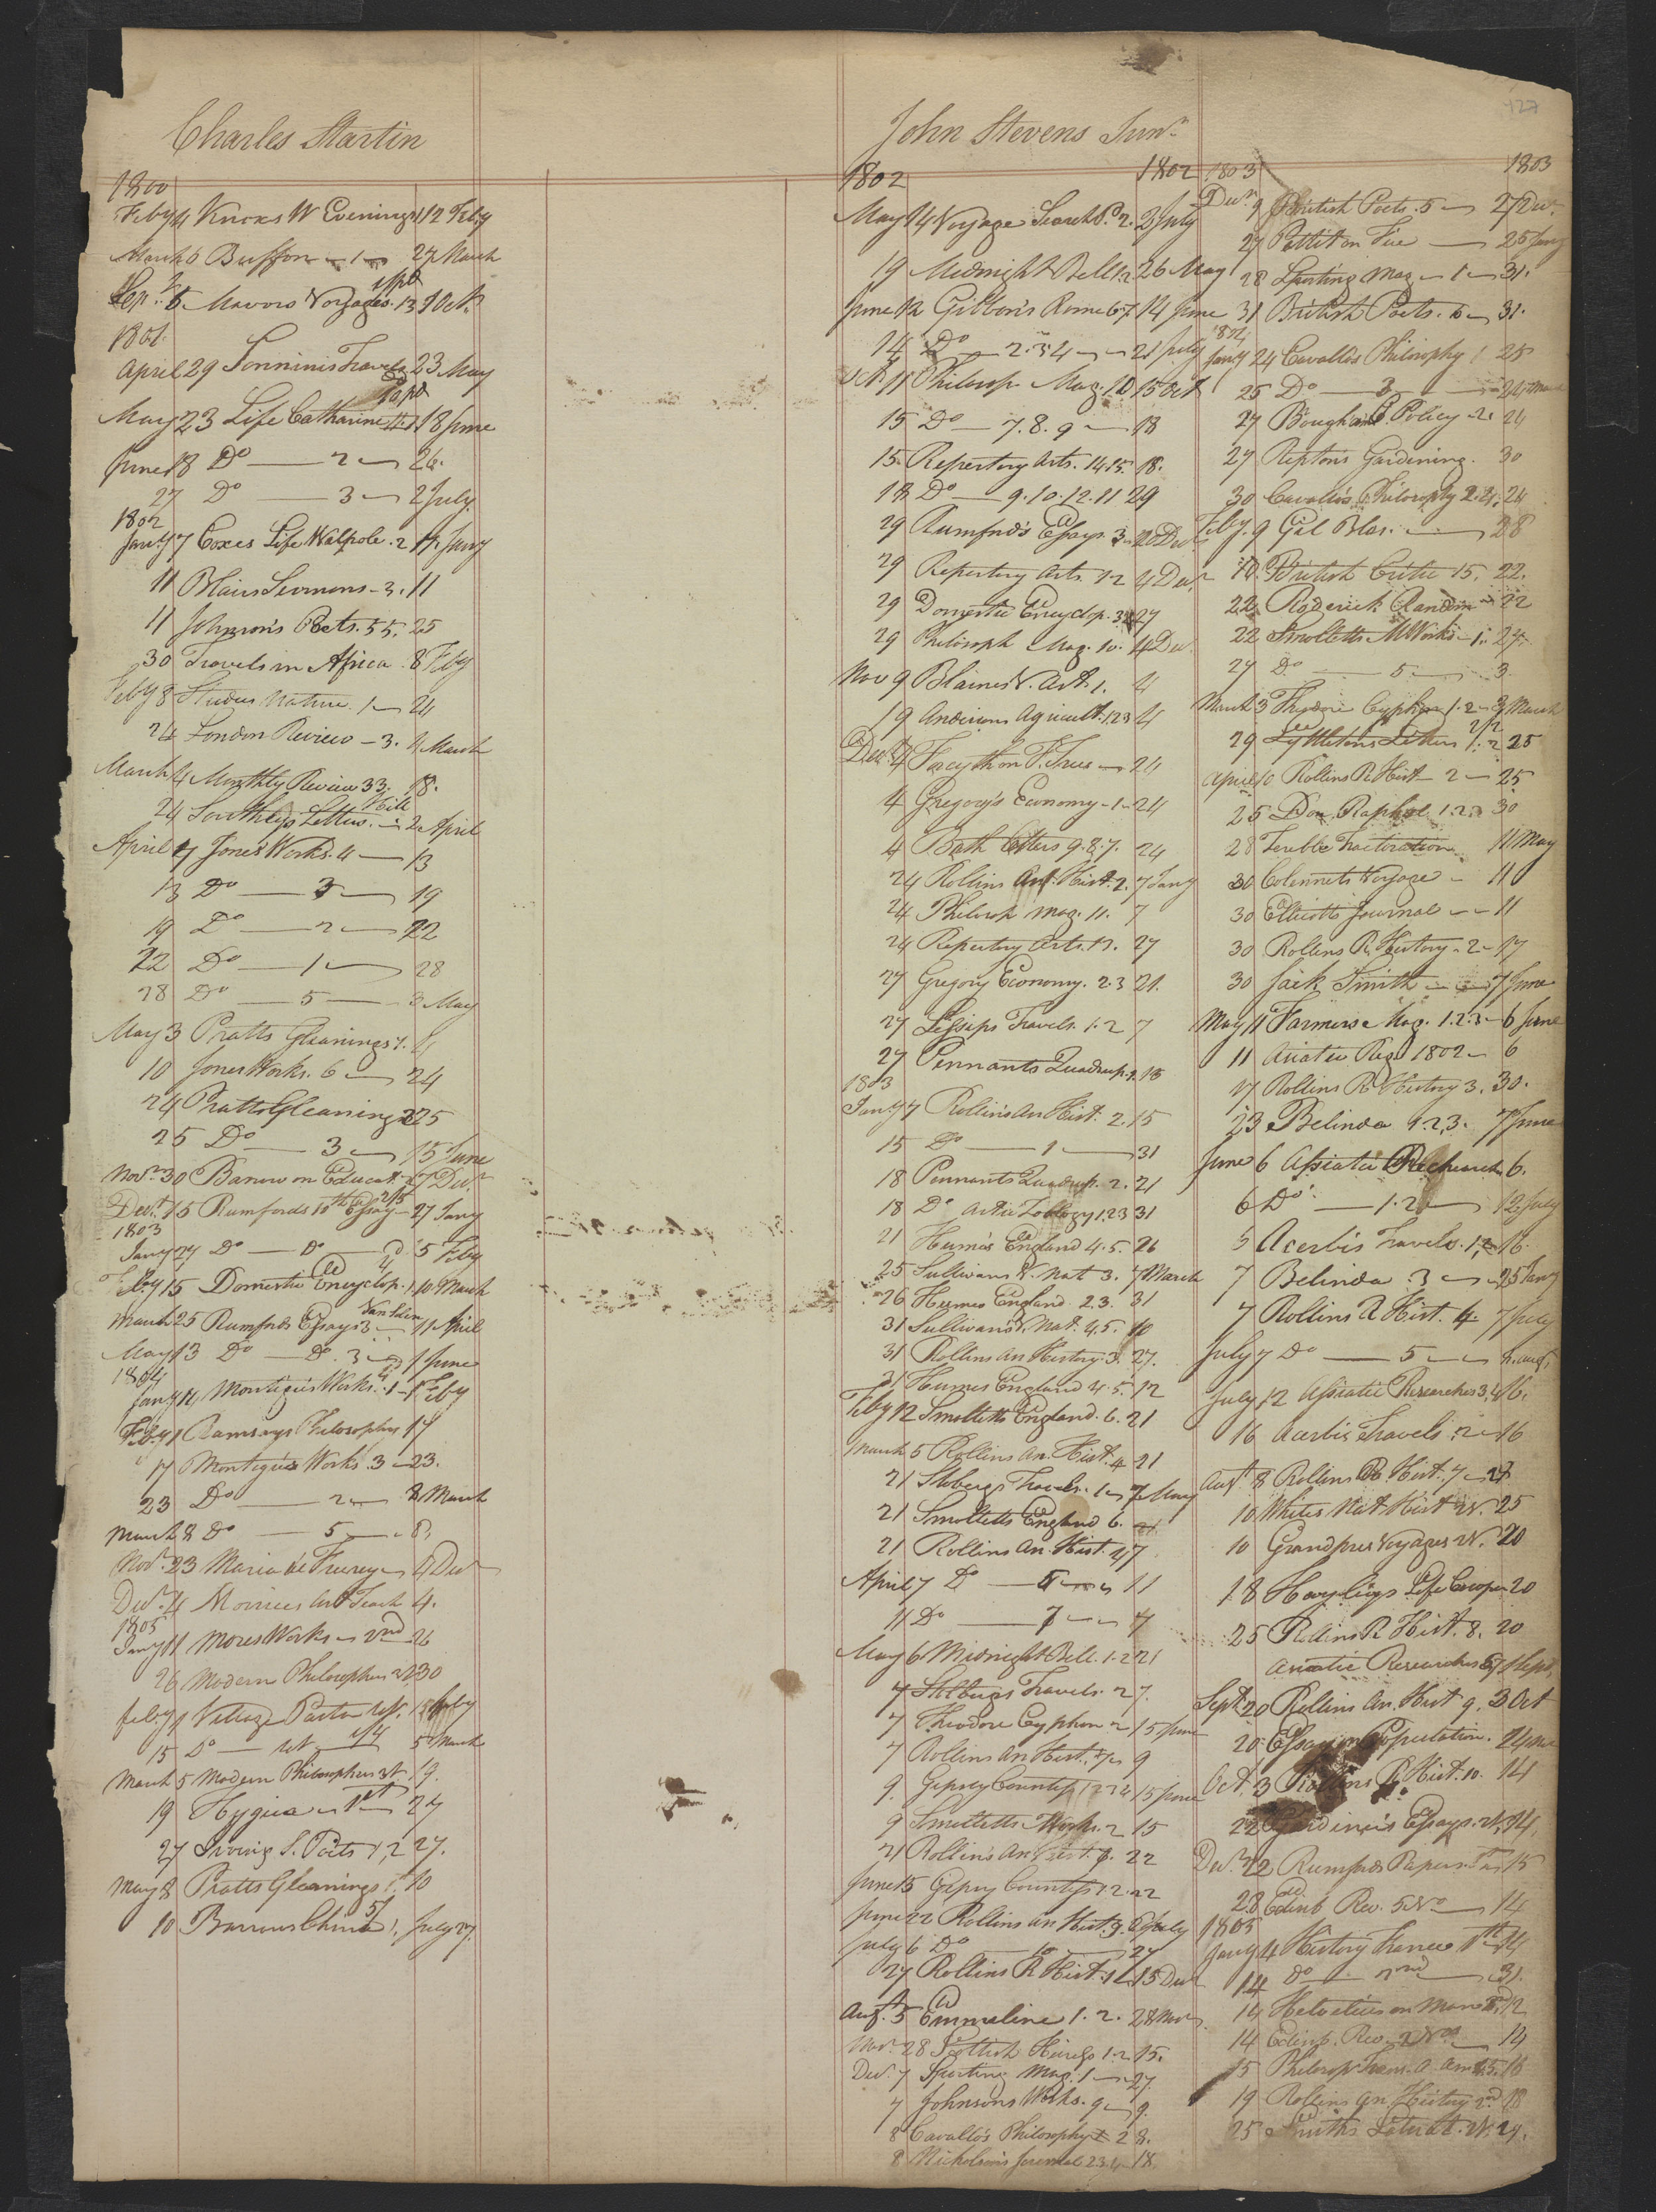 127
Charles Startin
1800
Feby 4 Knoxs W Evenings 1 12 Feby
March 6 Buffon 1 27 March
Sep. 5 Mavors Voyages. 13 1 Oct.
1801.
April 29 Sonninis Travels 23 May
May 23 Life Catharine 1 18 June
June 18 Do 2 26.
27 Do 3 2 July.
1802
Jany 7 Coxes Life Walpole. 2 Jany
11 Blairs Sermons. 3. 11
11 Johnson's Poets. 55. 25
30 Travels in Africa. 8 Feby
Feby 8 Studies Nature. 1 24
24 London Review 3. 4 March
March 4 Monthly Review 33. 18.
24 Southeys Letters. 2 April
April 7 Jones Works. 4 13
13 Do 3 19
19 Do 2 22
22 Do 1 28
28 Do 5 3 May
May 3 Pratts Gleanings 1.
10 Jones Works. 6 24
24 Pratts Gleanings 2 25
25 Do 3 15 June
Novr 30 Barrow on Educat. 17 Decr
Decr 15 Rumfords 10th Essay 27 Jany
1803
Jany 27 Do Do 5 Feby
Feby 15 Domestic Encyclop. 1 10 March
March 25 Rumfords Essays 3 11 April
May 13 Do Do. 3 1 June
1804
Jany 14 Montigue's Works. 1 1 Feby
Feby 1 Ramsays Philosophy 17
17 Montigue's Works. 3 23.
23 Do 2 8 March
March 8 Do 5 8.
Novr. 23 Maria 4 Decr
Decr. 4 4.
1805
Jany 11 Mores Works 2nd 26
26 Modern Philosophers 30
Feby 1 Village Pastor
15 Do 5 March
March 5 Modern Philosophers 3 19.
19 Hygeia 1st 27
27 Irvings S. Poets 1, 2 27.
May 8 Pratts Gleanings 1. 10
10 Barrows China 1, July 27.
John Stevens Junr
1802 1802
May 14 Voyage Search P. 2. 2 July
19 Midnight Bell 1.2 26 May
June 12 Gibbon's Rome 6.7 14 June
14 Do 2. 3. 4 21 July
Oct 11 Philosop. Mag. 10 15 Oct
15 Do 7. 8. 9 18
15 Repertory Arts. 14. 15. 18.
18 Do 9. 10. 12. 11 29
29 Rumford's Essays. 3 20 Decr
29 Repertory Arts. 12 4 Decr
29 Domestic Encyclop. 27
29 Philosoph Mag. 10. 4 Decr
Nov 9 Blaines V. Art. 1. 4
19 Andersons Agricult. 1 2 3 4
Decr 4 Forsyth on F. Trees 24
4 Gregory's Economy 1 24
4 Bath Letters 9. 8. 7. 24
24 Rollins An. Hist. 2. 7 Jany
24 Philosoh. Mag. 11. 7
24 Repertory Arts. 11. 27
27 Gregory Economy. 2. 3 21.
27 Lesseps Travels. 1. 2 7
27 Pennants Quadrup. 2. 15
1803
Jany 7 Rollins An Hist. 2. 15
15 Do 1 31
18 Pennants Quadrup. 2. 21
18 Do Artic Zoology 1 2 3 31
21 Hume's England 4. 5. 26
25 Sullivans V. Nat 3. 7 March
26 Humes England. 2. 3. 31
31 Sullivans V. Nat. 4. 5. 10
31 Rollins An History. 3. 27.
31 Humes England 4. 5. 12
Feby 12 Smolletts England. 6. 21
March 5 Rollins An. Hist. 4 21
21 Stolbergs Travels. 1 7 May
21 Smolletts England 6. 21
21 Rollins An. Hist. 4 7
April 7 Do 5 11
11 Do 7 7
May 6 Midnight Bell. 1. 2 21
7 Stolbergs Travels. 2 7.
7 Theodore Cyphon 2 15 June
7 Rollins An Hist. 9
9. Gipsey Countess 1 2 15 June
9 Smolletts Works. 2 15
21 Rollins An Hist. 22
June 15 Gipsey Countess 1. 2. 22
June 22 Rollins An Hist. 9. 6 July
July 6 Do 10 27
27 Rollins R Hist. 1 15 Decr
Augt. 5 Emmeline 1. 2. 28 Novr
Novr. 28 Scottish 1. 2 15.
Decr. 7 Sporting Mag. 1 27
7 Johnsons Works. 9 9.
8 Cavallo's Philosophy 2 8.
8 Nicholson's Journal 2 3 4 18.
1803 1803
Decr. 9 British Poets. 5 27 Decr.
27 25 Jany
28 Sporting Mag 1 31.
31 British Poets. 6 31.
1804
Jany 24 Cavallos Philosophy 1 25
25 Do 3 24 March
27 Brougham C. Policy 2. 24
27 Reptons Gardening. 30
30 Cavallo's Philosophy 2. 4. 24
Feby. 9 Gil Blas. 28
10. British Critic 15. 22.
22 Roderick Random 22
22 Smolletts M Works 1. 27.
27 Do 5 3
March 3 Theodore Cyphon 1. 2 3 March
29 Lyttletons Letters 1. 2 25
April 10 Rollins R Hist 2 25
25 Don Raphael 1. 2. 3 30
28 Terrible Tractoration 11 May
30 Colennets Voyage 11
30 Ellicotts Journal 11
30 Rollins R. History. 2 17
30 Jack Smith 7 June
May 11 Farmers Mag. 1. 2. 3 6 June
11 Asiatic Reg. 1802 6
17 Rollins R History 3. 30.
23 Belinda 1. 2, 3. 7 June
June 6 Assiatic Research 6.
6 Do. 1. 2 12 July
5 Acerbis Travels. 1. 16.
7 Belinda. 3 25 Jany
7 Rollins R Hist. 4 7 July
July 7 Do 5 Augt.
July 12 Assiatic Researches 3. 4 16.
16 Acerbis Travels. 2 16
Augt 8 Rollins R Hist. 7 27
10 Whites Nat Hist 25
10 Grandpres Voyages 20
18 Hayleys Life Cowper 20
25 Rollins R Hist. 8. 20
Asiatic Researches 7 Sept.
Sept 20 Rollins An. Hist 9. 3 Oct
20 Essay on Population. 24
Oct. 3 Rollins R Hist. 10. 14
22 Essays. 14.
Decr. 12 Rumfords Papers. 15
28 Edinb Rev. 5 No 14
1805
Jany 4 History France 1st 14
14 Do 2nd 31.
14 Helvetius on Man 12
14 Edinb. Rev. 2 No 14
15 Philosop. Trans. A. Am. 5. 16
19 Rollins An. History 2nd 18
25 29.